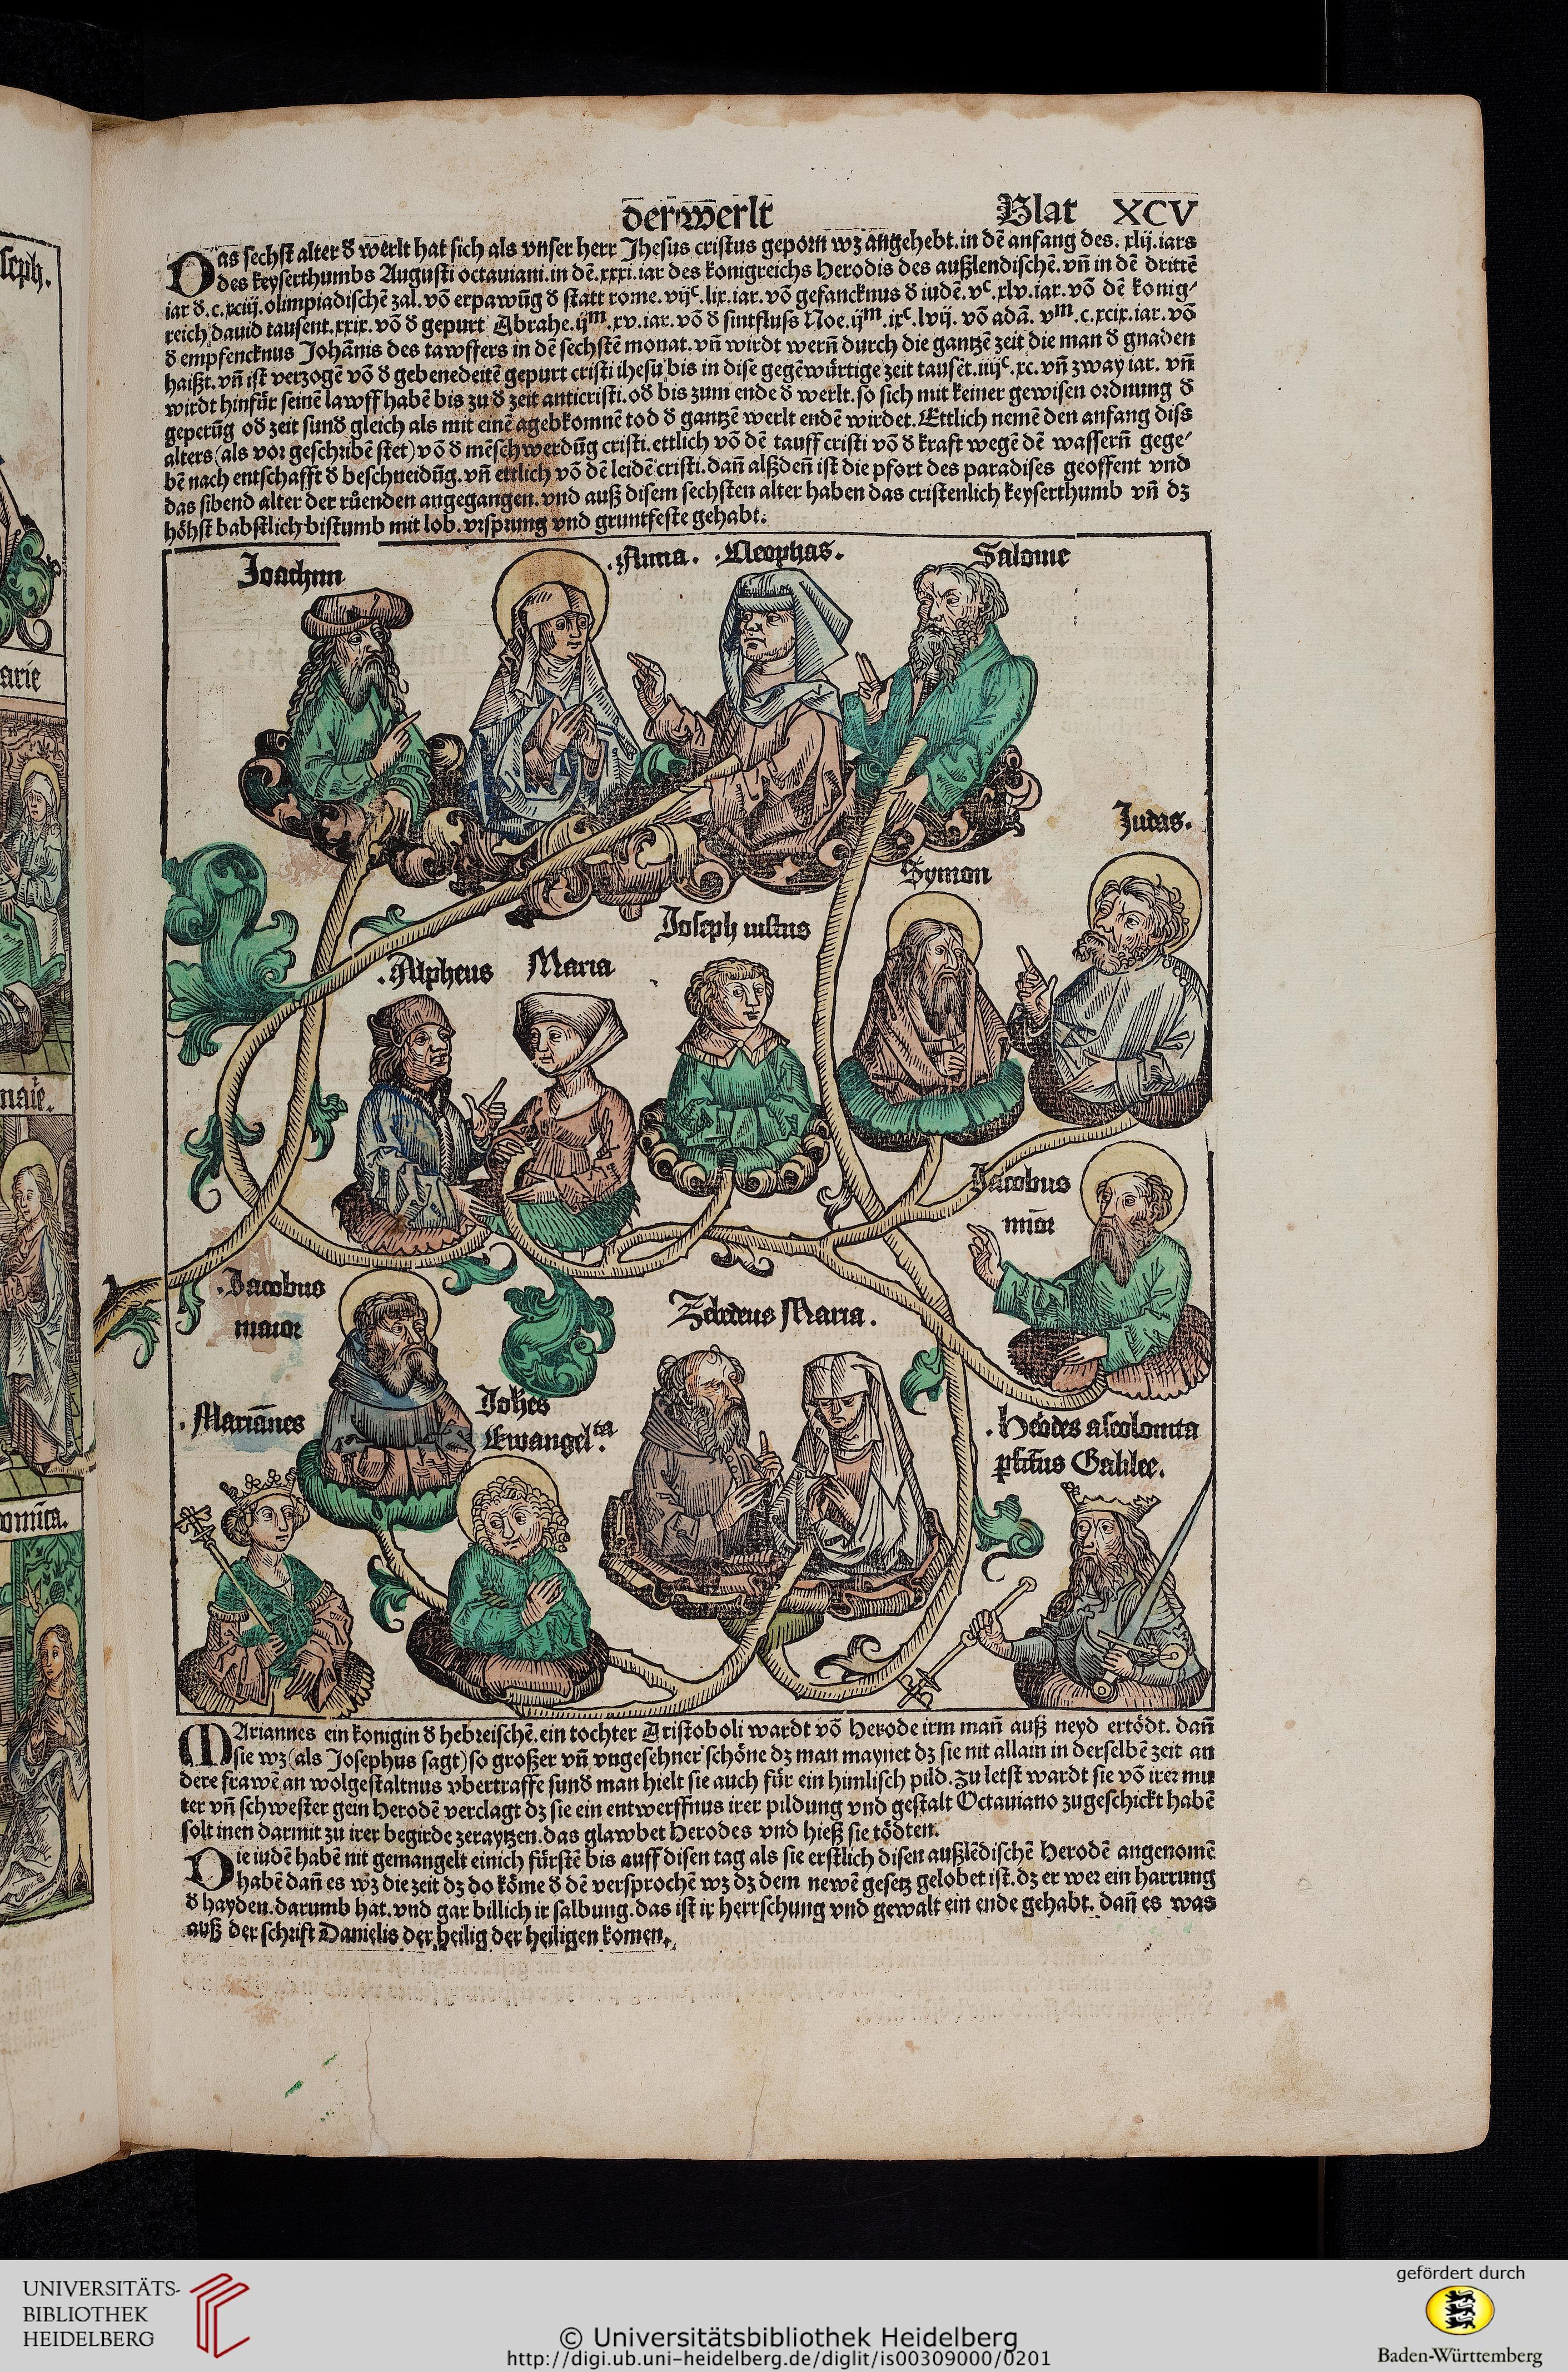 der werlt Blat XCV
Das sechst alter d̕ werlt hat sich als vnser herr Jhesus cristus geporn wz angehebt. in dē anfang des. xlij. iars
des keyserthumbs Augusti octauiani. in dē. xxxi. iar des konigreichs Herodis des außlendischē. vñ in dē drittē
iar d̕. c. xciij. olimpiadischē zal. võ erpawūg d̕ statt rome. vijᶜ. lix. iar. võ gefancknus d̕ iudē. vᶜ. xlv. iar. võ dē konig⸗
reich dauid tausent. xxix. võ d̕ gepurt Abrahe. ijᵐ. xv. iar. võ d̕ sintfluss Noe. ijᵐ. ixᶜ. lvij. võ adã. vᵐ. c. xcix. iar. võ
d̕ empfencknus Johãnis des tawffers in dē sechstē monat. vñ wirdt wern̄ durch die gantzē zeit die man d̕ gnaden
haißt. vñ ist verzogē võ d̕ gebenedeitē gepurt cristi ihesu bis in dise gegēwürtige zeit tausēt. iiijᶜ. xc. vñ zway iar. vñ
wirdt hinfür seinē lawff habē bis zu d̕ zeit anticristi. od̕ bis zum ende d̕ werlt. so sich mit keiner gewisen ordnung d̕
geperūg od̕ zeit sund̕ gleich als mit einē agebkomnē tod d̕ gantzē werlt endē wirdet. Ettlich nemē den anfang diss
alters (als vor geschribē stet) võ d̕ mēschwerdūg cristi. ettlich võ dē tauff cristi võ d̕ kraft wegē dē wassern̄ gege⸗
bē nach entschafft d̕ beschneidūg. vñ ettlich võ dē leidē cristi. dañ alßdeñ ist die pfort des paradises geoffent vnd
das sibend alter der růenden angegangen. vnd auß disem sechsten alter haben das cristenlich keyserthumb vñ dz
höhst babstlich bistumb mit lob. vrsprung vnd gruntfeste gehabt.
Joachim
.Anna. .Cleophas.
Salome
Judas.
Symon
Joseph iustus
.Alpheus Maria
Jacobus
miōr
.Jacobus
maior
Zebedeus Maria.
.Mariān̄es
Joh̄es
Ewangelᵗᵃ.
.H̕odes ascolonita
p̄fat̄us Galilee.
MAriannes ein konigin d̕ hebreischē. ein tochter Aristoboli wardt võ Herode irm mañ auß neyd ertödt. dañ
sie wz (als Josephus sagt) so großer vñ vngesehner schöne dz man maynet dz sie nit allain in derselbē zeit an
dere frawē an wolgestaltnus vbertraffe sund̕ man hielt sie auch für ein himlisch pild. zu letst wardt sie võ irer mu
ter vñ schwester gein Herodē verclagt dz sie ein entwerffnus irer pildung vnd gestalt Octauiano zugeschickt habē
solt inen darmit zu irer begirde zeraytzen. das glawbet Herodes vnd hieß sie tödten.
Die iudē habē nit gemangelt einich fürstē bis auff disen tag als sie erstlich disen außlēdischē Herodē angenomē
habē dañ es wz die zeit dz do köme d̕ dē versprochē wz dz dem newē gesetz gelobet ist. dz er wer ein harrung
d̕ hayden. darumb hat. vnd gar billich ir salbung. das ist ir herrschung vnd gewalt ein ende gehabt. dañ es was
auß der schrift Danielis der heilig der heiligen komen.
seph.
arie
UNIVERSITÄTS-
BIBLIOTHEK
HEIDELBERG
© Universitätsbibliothek Heidelberg
http://digi.ub.uni-heidelberg.de/diglit/is00309000/0201
gefördert durch
Baden-Württemberg